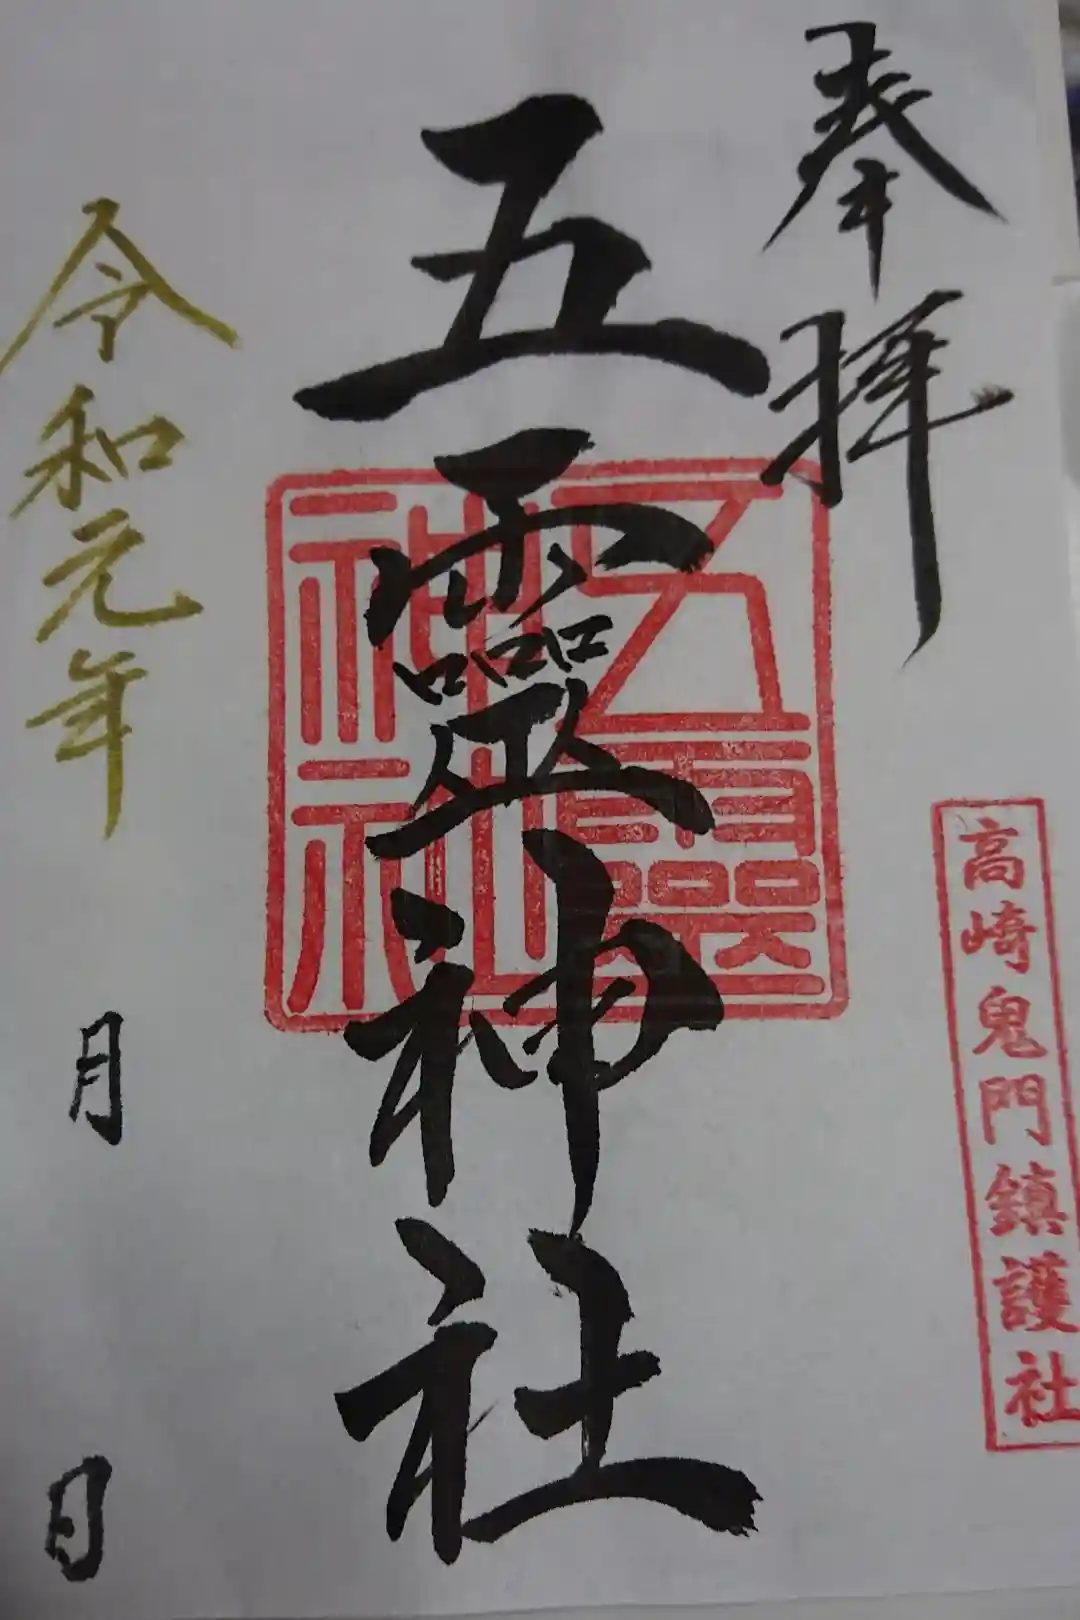 奉拝
高崎鬼門鎮護社
五靈神社
五靈神社
令和元年
月
日